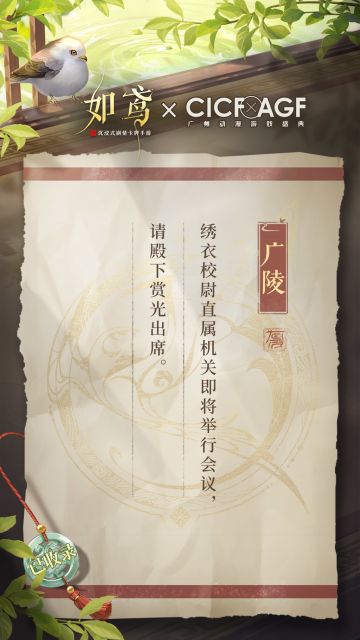 如鸢×CICF×AGF
沉浸式剧情卡牌手游
广州动漫游戏盛典
广陵
绣衣校尉直属机关即将举行会议，
请殿下赏光出席。
已收录